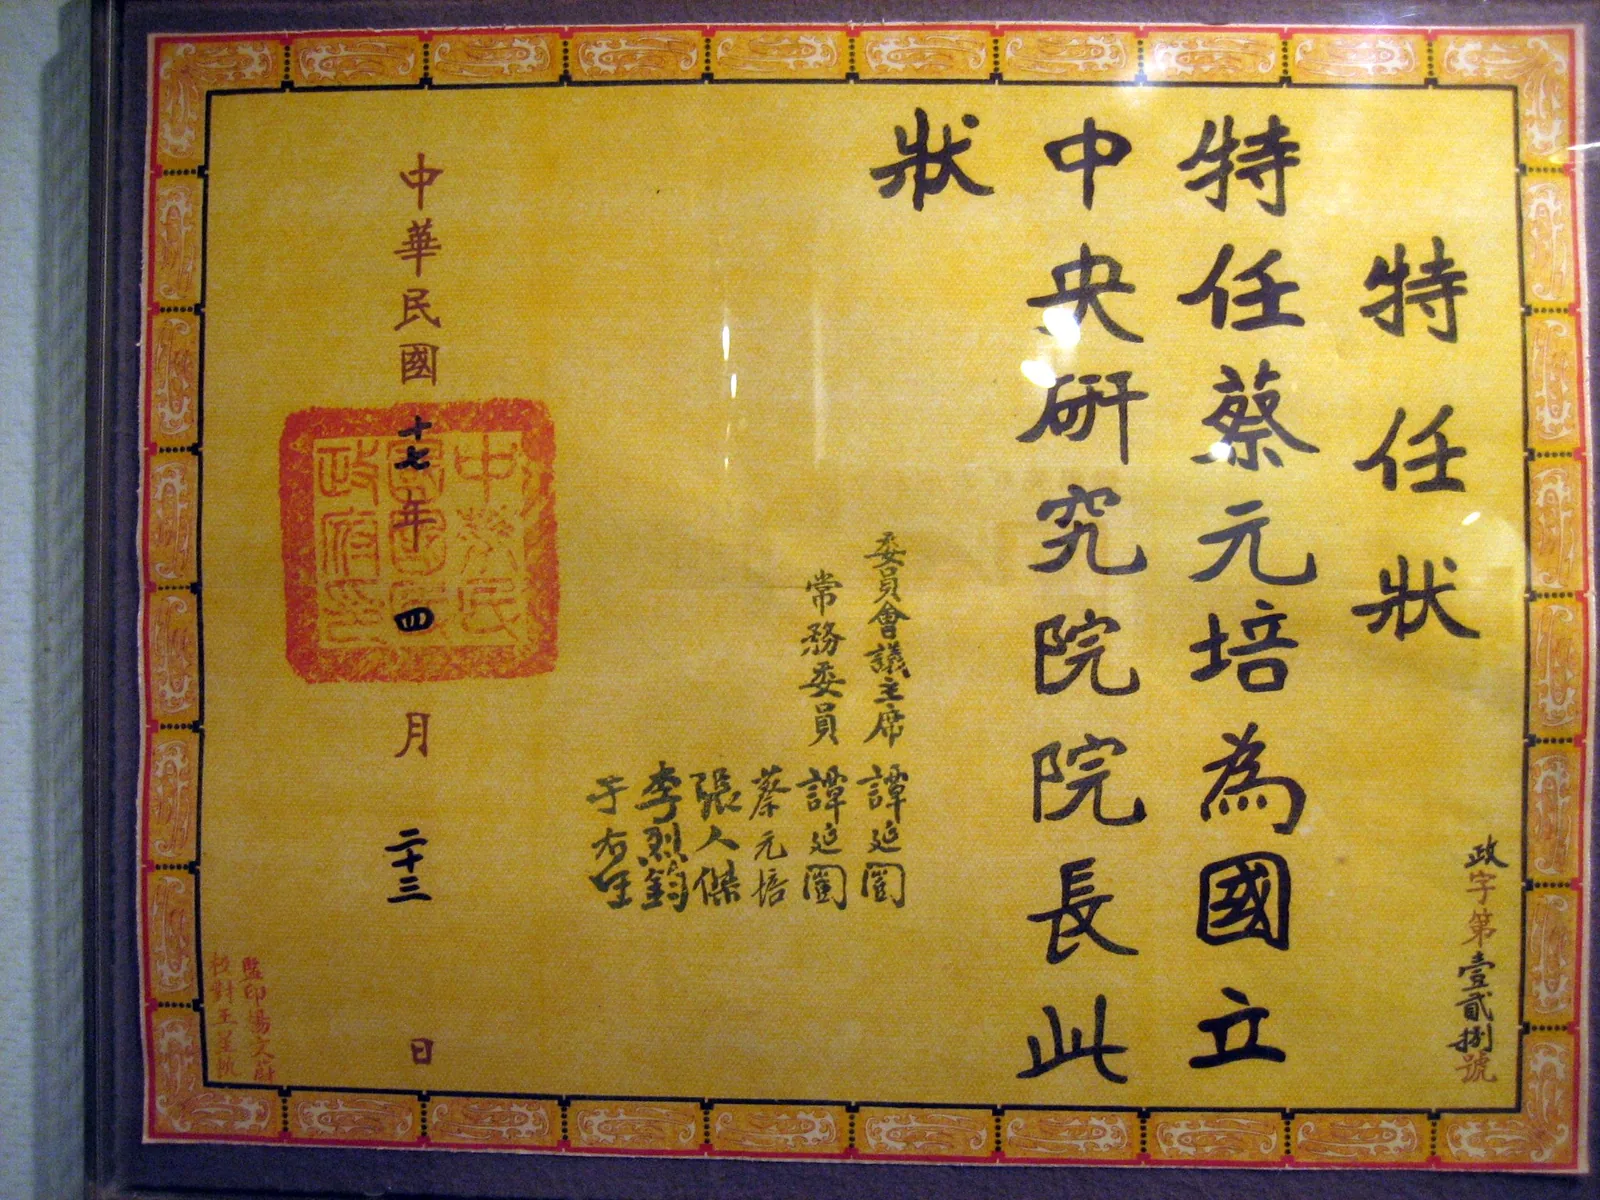 特任狀
特任蔡元培為國立
中央研究院院長此
狀
政字第壹貳捌號
委員會議主席 譚延闓
常務委員 譚延闓
蔡元培
張人傑
李烈鈞
于右任
中華民國十七年四月二十三日
中華民
國國民
政府印
監印楊文蔚
校對王